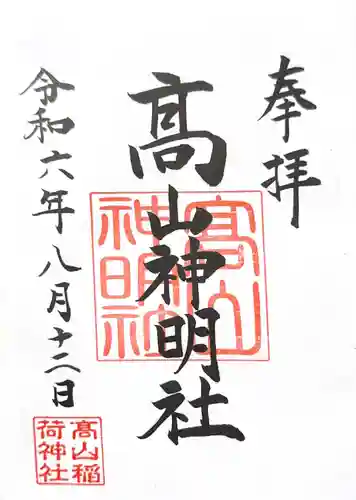 奉拝
髙山神明社
髙山神明社
令和六年八月十二日
髙山稲荷神社